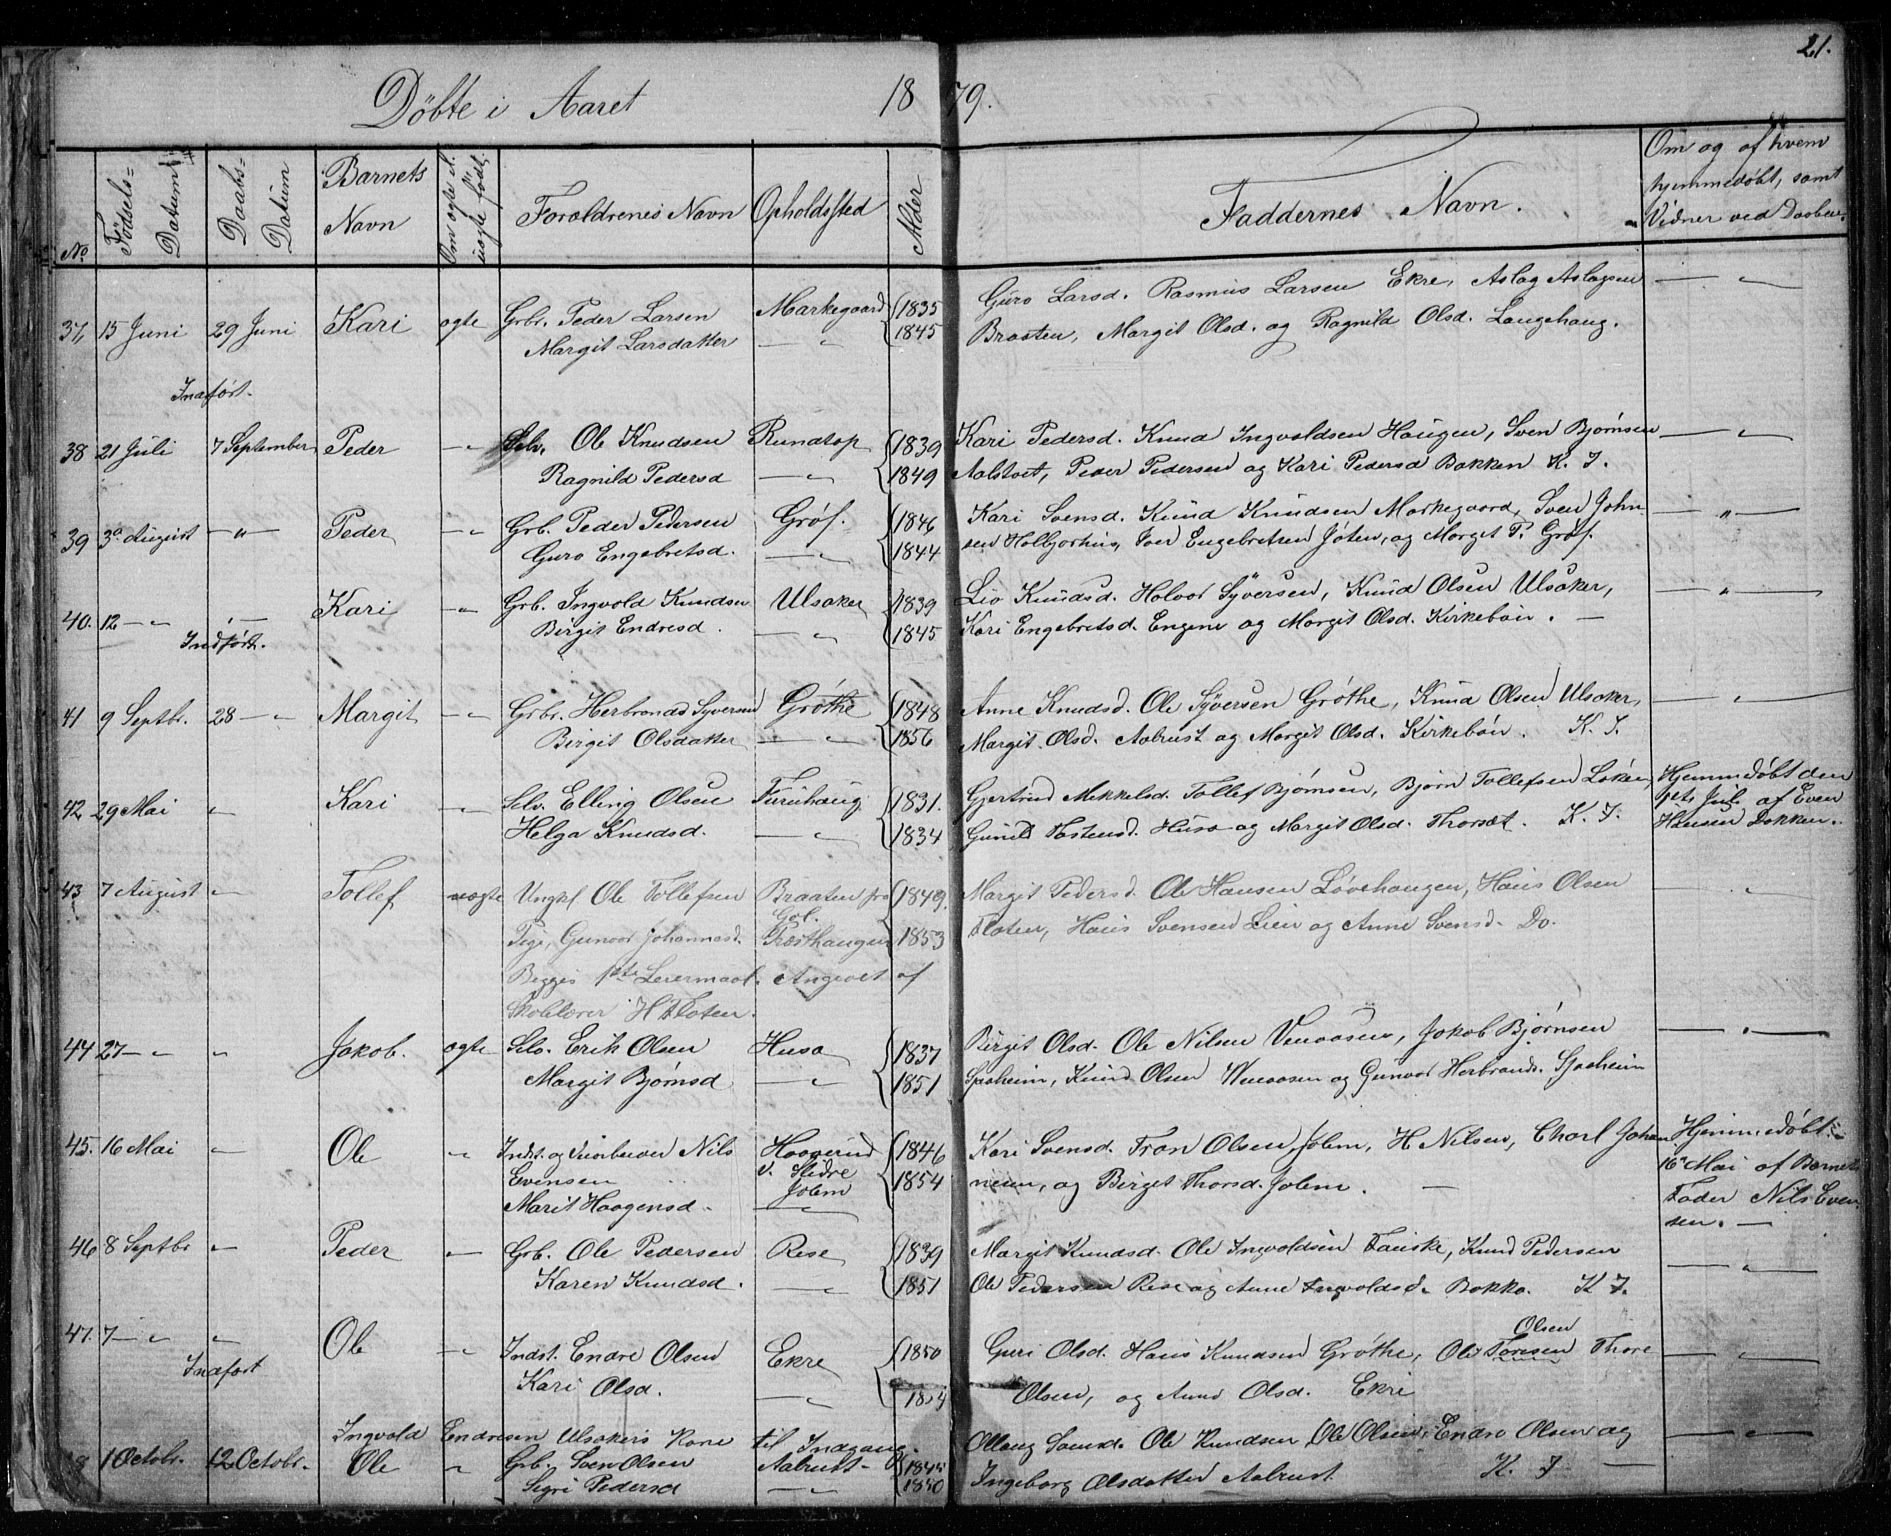 21.
Döbte i Aaret 1879.
No. Födsels= Datum Daabs= Datum Barnets Navn Om ægte el. uægte födt. Forældrenes Navn Opholdssted Alder Faddernes Navn. Om og af hvem hjemmedöbt, samt Vidner ved Daaben
37, 15 Juni 29 Juni Kari ægte Grbr. Peder Larsen Markegaard 1835 Guro Larsd. Rasmus Larsen Ekre, Aslag Aslagsen — „
Margit Larsdatter — „ 1845 Braaten, Margit Olsd. og Ragnild Olsd. Langehaug.
Indfört.
38 21 Juli 7 September Peder — „ Selv. Ole Knudsen Rundtop 1839 Kari Pedersd. Knud Ingvaldsen Haugen, Sven Björnsen — „ —
Ragnild Pedersd — „ 1849 Aalstvet, Peder Pedersen og Kari Pedersd Bakken K. I.
39 30 August — „ — Peder — „ Grb. Peder Pedersen Gröf. 1846 Kari Svensd. Knud Knudsen Markegaard, Sven John- — „ —
Guro Engebretsd. — „ 1844 sen Halbjorhus, Iver Engebretsen Jöten, og Margit P. Gröf.
40. 12 — „ — Kari — „ Grb. Ingvald Knudsen Ulsaker 1839 Liv Knudsd. Halvor Syversen, Knud Olsen Ulsaker, — „ —
Indfört. Birgit Endresd. — „ 1845 Kari Engebretsd. Engene og Margit Olsd. Kirkeböin. —
41 9 Septbr. 28 — „ Margit — „ Grbr. Herbrand Syversen Gröthe 1848 Anne Knudsd. Ole Syversen Gröthe, Knud Olsen Ulsaker, — „ —
Birgit Olsdatter — „ 1856 Margit Olsd. Aalrust og Margit Olsd. Kirkeböin. K. I.
42 29 Mai „ Kari „ Selv. Elling Olsen Furuhaug. 1831. Gjertrud Mikkelsd. Tollef Björnsen, Björn Tollefsen Löken, Hjemmedöbt den
Helga Knudsd. — „ 1834 Gunild Torstensd. Huso og Margit Olsd. Thorsæt. K. I. 1ste Juli af Even
Hansen Dokken.
43 7 August „ Tollef uægte Ungkl Ole Tollefsen Braaten fra 1849. Margit Pedersd. Ole Hansen Lövehaugen, Hans Olsen — „
Gol.
Pige, Gunvor Johannesd. Græsthaugen 1853 Floten, Hans Svensen Lien og Anne Svensd. Do.
Begges 1ste Leiermaal. Angivet af
Skolelærer H Floten.
44 27 — „ „ Jakob. ægte Selv. Erik Olsen Huso 1837 Birgit Olsd. Ole Nilsen Venaasen, Jakob Björnsen — „ —
Margit Björnsd — „ 1851 Spaheim, Knud Olsen Venaasen og Gunvor Herbrandsd. Spaheim
45. 16 Mai „ Ole „ Indst. og Snorbærer Nils Haaverud 1846 Kari Svensd. Tron Olsen Jolem, H Nilsen, Charl Johan Hjemmedöbt
Evensen v. Slidre 1854 nesen, og Birget Thorsd. Jolem. — 16 Mai af Barnets
Marit Haagensd. Jolem Fader Nils Even-
sen. —
46 8 Septbr „ Peder „ Grb. Ole Pedersen Rise 1839 Margit Knudsd. Ole Ingvoldsen Fauske, Knud Pedersen — „ —
Karen Knudsd. — „ 1851 Ole Pedersen Rise og Anne Ingvoldsd. Bakko. K I.
47. 7 — „ „ Ole — „ Indst. Endre Olsen Ekre 1850 Guri Olsd. Hans Knudsen Gröthe, Ole Toresen Olsen Thore — „ —
Indfört Kari Olsd. — „ Olsen, og Anne Olsd. Ekre
Ingvald Endresen Ulsakers Kone til Indgang.
1 Octobr. 12 Octobr. Ole „ Grb. Sven Olsen Aalrust 1845 Ollaug Svensd. Ole Knudsen, Ole Olsen, Endre Olsen og — „ —
Sigri Pedersd — „ 1850 Ingeborg Olsdatter Aalrust. K. I —